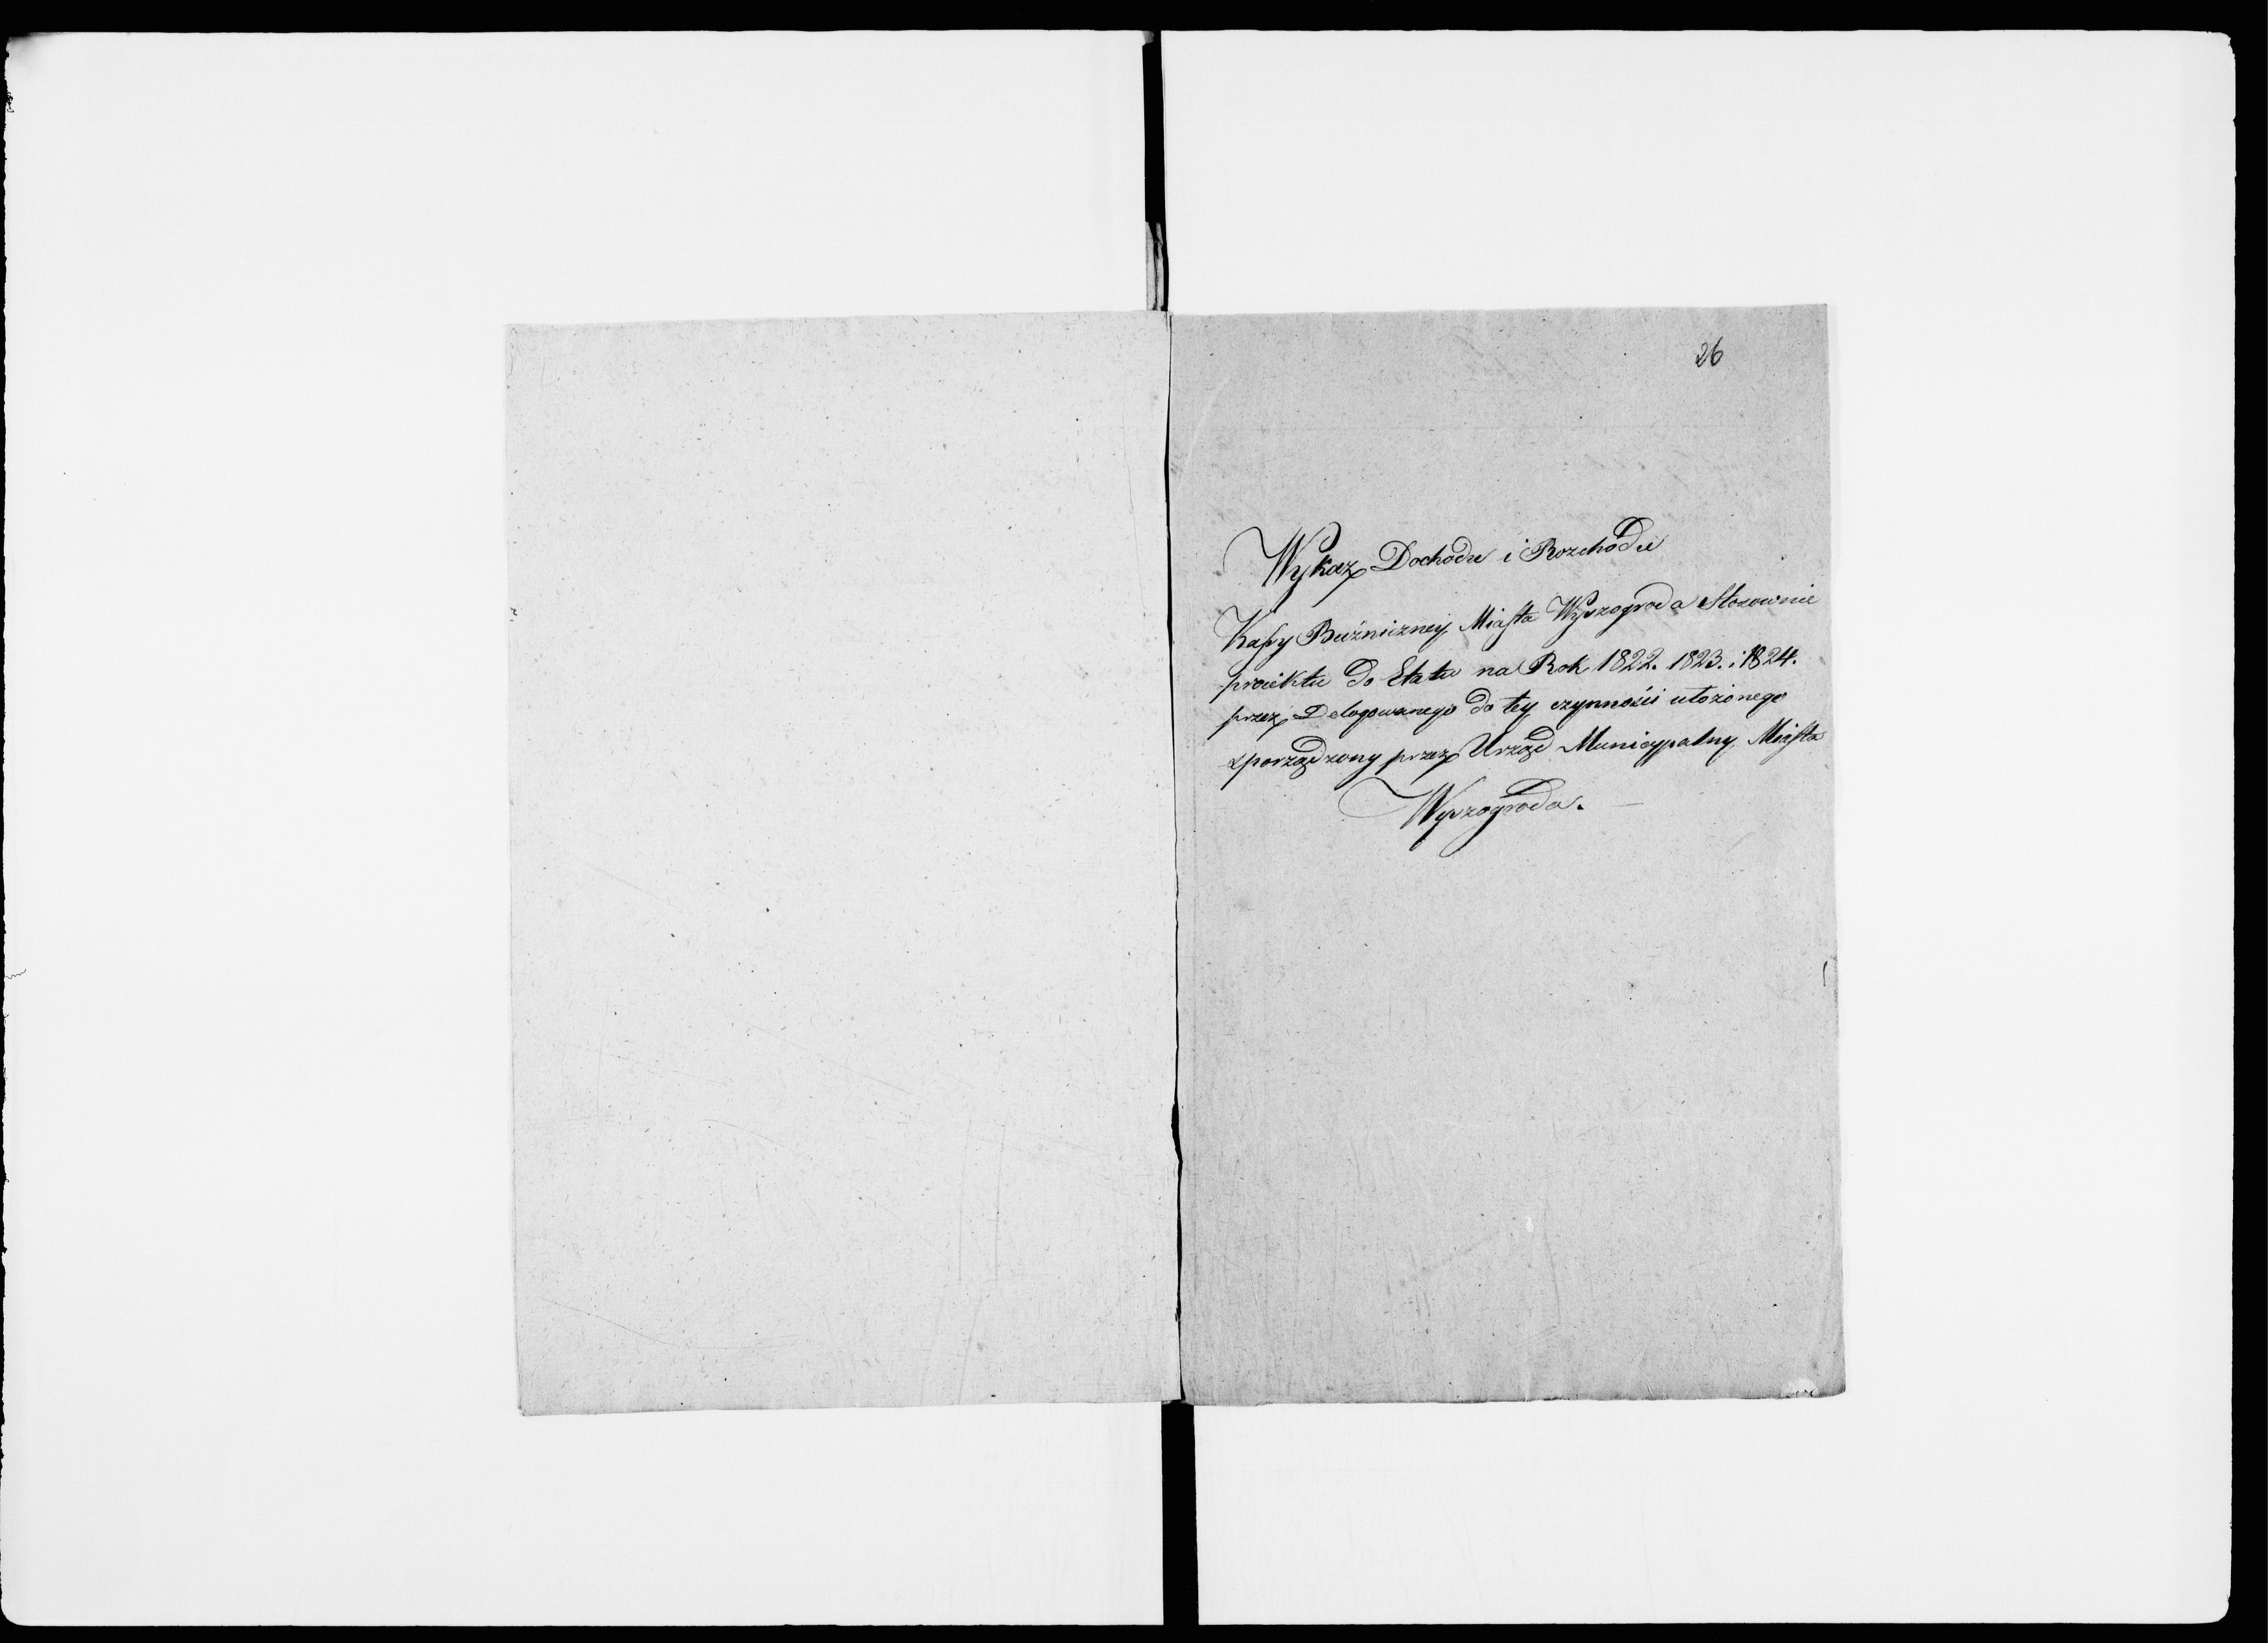 26
Wykaz Dochodu i Rozchodu
Kassy Bużniczney Miasta Wyszogroda Stosownie
proiektu do Etatu na Rok 1822. 1823. i 1824.
przez Delegowanego do tey czynności ułożonego
sporządzony przez Urząd Municypalny Miasta
Wyszogroda.